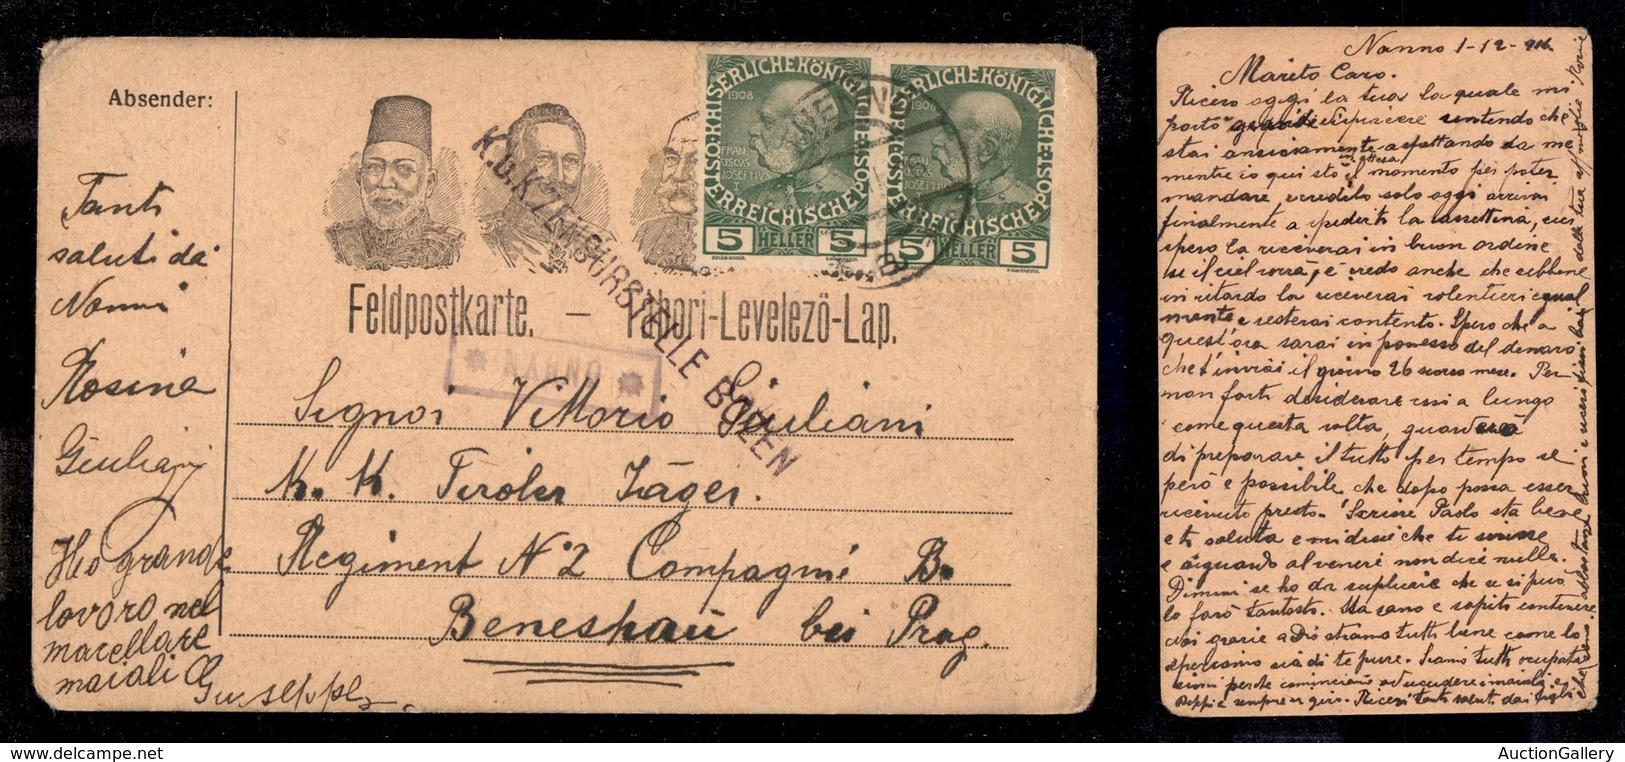 Absender:
Tanti
saluti da
Nanni
Rosina
Giuliani
Ho grande
lavoro nel
macellare
maiali
Giuseppe
K.u.K. ZENSURSTELLE BOZEN
1908
FRANCISCUS JOSEPHUS I
KAISERLICHE KÖNIGLICHE ÖSTERREICHISCHE POST
5 HELLER 5
1908
KAISERLICHE KÖNIGLICHE ÖSTERREICHISCHE POST
5 HELLER 5
Feldpostkarte. — Tábori-Levelező-Lap.
NANNO
Signor Vittorio Giuliani
K. K. Tiroler Jäger.
Regiment N° 2 Compagnie B.
Beneshau bei Prag.
Nanno 1-12-916
Marito Caro.
Ricevo oggi la tua la quale mi
portò grande dispiacere sentendo che
stai ansiosamente aspettando da me
mentre io qui stò in attesa il momento per poter
mandare, e credilo solo oggi arrivai
finalmente a spedirti la cassettina,
spero la riceverai in buon ordine
se il ciel vorrà, e credo anche che sebbene
in ritardo la riceverai volentieri egual
mente e resterai contento. Spero che a
quest'ora sarai in possesso del denaro
che t'inviai il giorno 26 scorso mese. Per
non farti desiderare così a lungo
come questa volta, guarderò
di preparare il tutto per tempo se
però è possibile che dopo possa esser
ricevuto presto. Scrisse Paolo sta bene
e ti saluta e mi disse che ti scrisse
e riguardo al venire non dice nulla.
Dimmi se ho da suplicare che se si può
lo farò tantosto. Ma sano e sapiti contenere
Noi grazie a Dio stiamo tutti bene come lo
speriamo sia di te pure. Siamo tutti ocupati
perche cominciano ad uccidere i maiali e
Beppi è sempre in giro. Ricevi tanti saluti dai figli
AuctionGallery